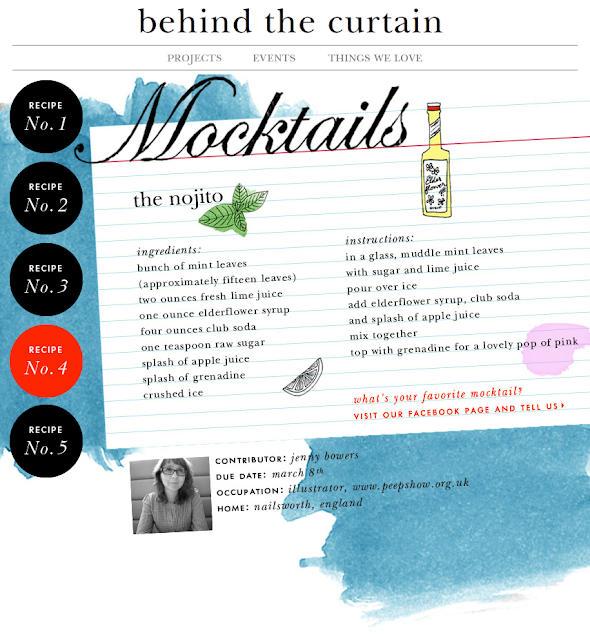 behind the curtain
PROJECTS EVENTS THINGS WE LOVE
RECIPE
No. 1
RECIPE
No. 2
RECIPE
No. 3
RECIPE
No. 4
RECIPE
No. 5
Mocktails
the nojito
ingredients:
bunch of mint leaves
(approximately fifteen leaves)
two ounces fresh lime juice
one ounce elderflower syrup
four ounces club soda
one teaspoon raw sugar
splash of apple juice
splash of grenadine
crushed ice
Elder
flower
instructions:
in a glass, muddle mint leaves
with sugar and lime juice
pour over ice
add elderflower syrup, club soda
and splash of apple juice
mix together
top with grenadine for a lovely pop of pink
what's your favorite mocktail?
VISIT OUR FACEBOOK PAGE AND TELL US
CONTRIBUTOR: jenny bowers
DUE DATE: march 8th
OCCUPATION: illustrator, www.peepshow.org.uk
HOME: nailsworth, england